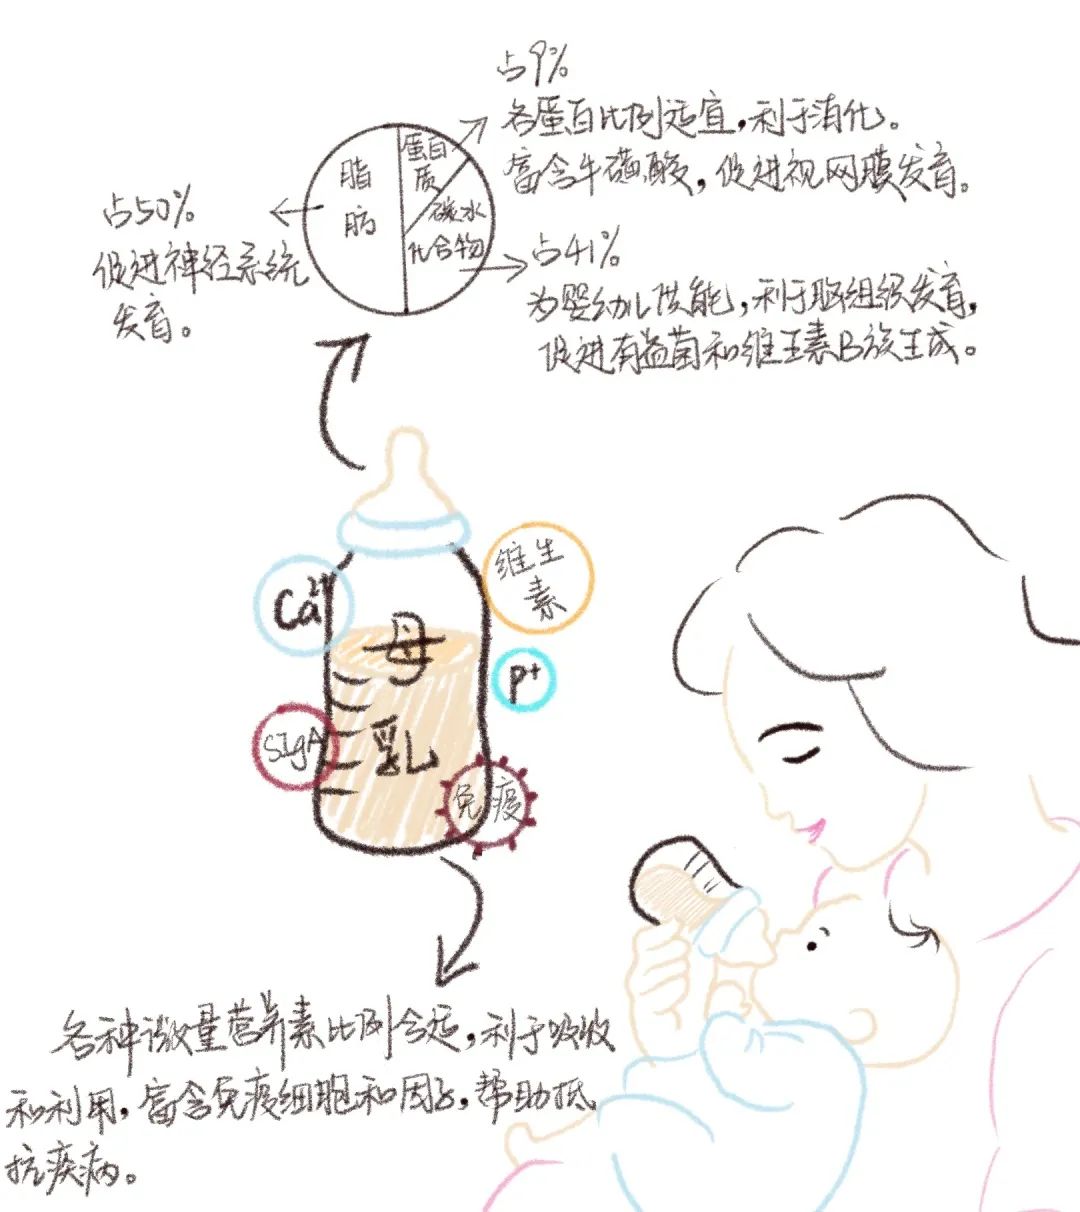 占9%
各蛋白比例适宜，利于消化。
富含牛磺酸，促进视网膜发育。
脂
肪
蛋白
质
碳水
化合物
占50%
促进神经系统
发育。
占41%
为婴幼儿供能，利于脑组织发育，
促进有益菌和维生素B族生成。
Ca²⁺
维生
素
母
乳
P⁺
SIgA
免疫
各种微量营养素比例合适，利于吸收
和利用，富含免疫细胞和因子，帮助抵
抗疾病。